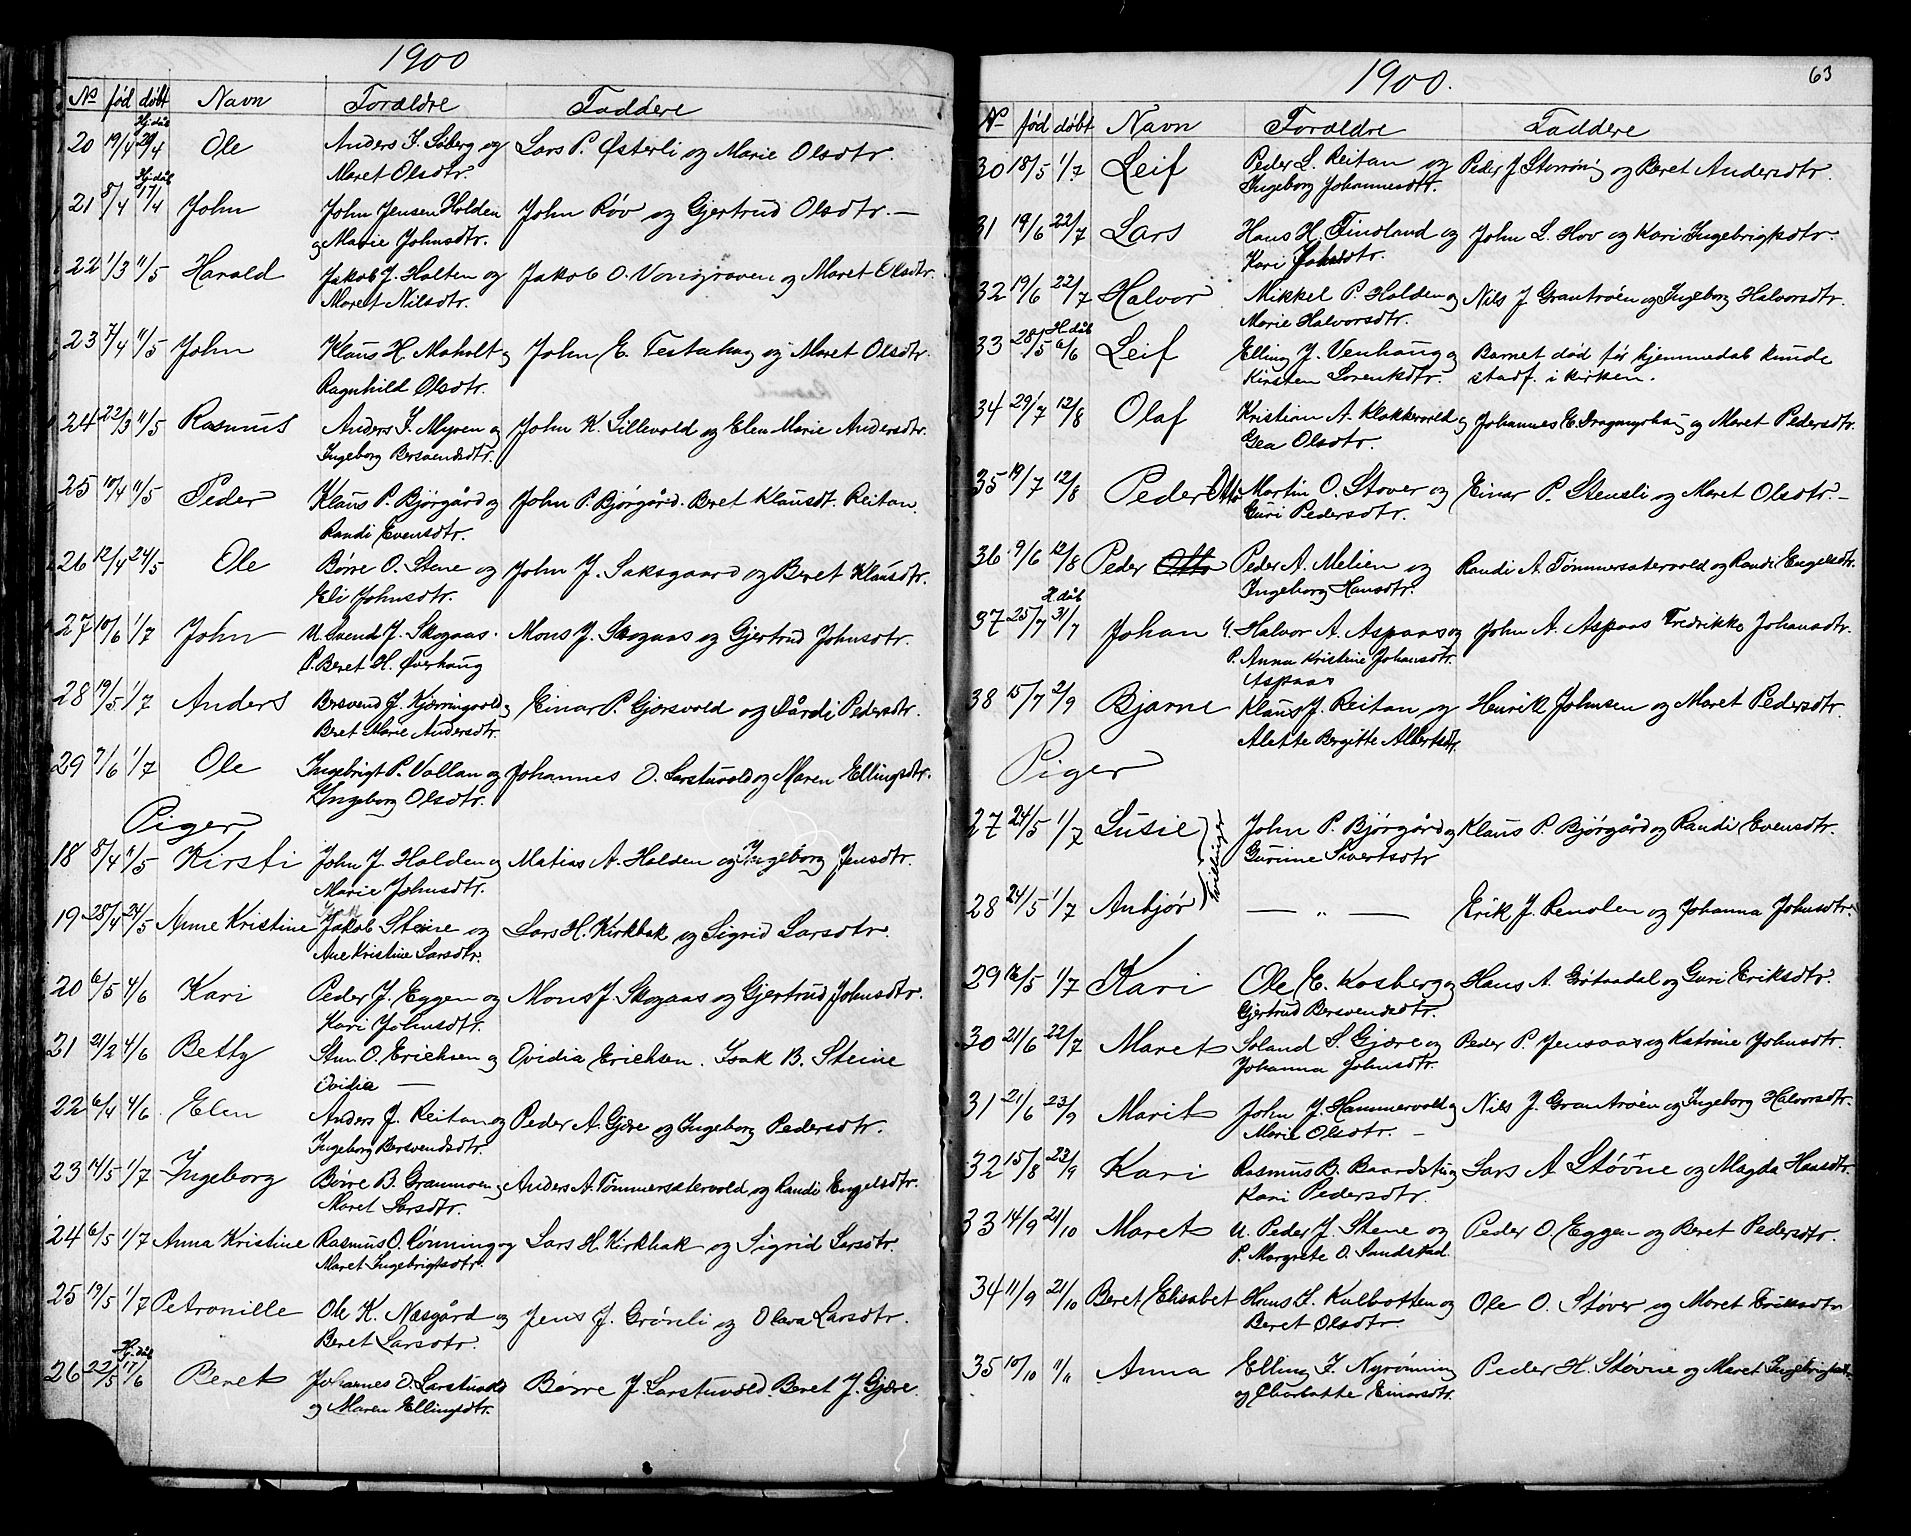 1900
No født døbt Navn Forældre Faddere
Hj.dåb
20 19/4 29/4 Ole Anders J. Søberg og Lars P. Østerli og Marie Olsdtr.
Maret Olsdtr.
Hj.dåb
21 8/4 17/4 John John Jensen Holden John Röv og Gjertrud Olsdtr. —
og Marie Johnsdtr.
22 1/3 11/5 Harald Jakob J. Holten og Jakob O. Vongraven og Maret Olsdtr.
Maret Nilsdtr.
23 7/4 11/5 John Klaus H. Moholt og John E. Festahag og Maret Olsdtr.
Ragnhild Olsdtr.
24 22/3 11/5 Rasmus Anders J. Myren og John K. Sillevold og Elen Marie Andersdtr.
Ingeborg Bersvendsdtr.
25 10/4 11/5 Peder Klaus P. Bjørgård og John P. Bjørgård. Beret Klausdt. Reitan.
Randi Evensdtr.
26 12/4 24/5 Ole Børre O. Stene og John J. Saksgaard og Beret Klausdtr.
Eli Johnsdtr.
27 10/6 1/7 John U. Svend J. Skogaas. Mons J. Skogaas og Gjertrud Johnsdtr.
P. Beret H. Øverhaug
28 19/5 1/7 Anders Bersvend J. Kjerringvold og Einar P. Gjersvold og Gårdi Pedersdtr.
Beret Marie Andersdtr.
29 7/6 1/7 Ole Ingebrigt P. Vollan og Johannes O. Larstuvold og Maren Ellingsdtr.
Ingeborg Olsdtr.
Piger
18 8/4 11/5 Kirsti John J. Holden og Matias A. Holden og Ingeborg Jensdtr.
Marie Johnsdtr.
19 28/4 24/5 Anne Kristine Jakob Steine og Lars H. Kirkbak og Sigrid Larsdtr.
Ane Kristine Larsdtr.
20 6/5 4/6 Kari Peder J. Eggen og Mons J. Skogaas og Gjertrud Johnsdtr.
Kari Johnsdtr.
21 21/2 4/6 Betty Sten O. Erichsen og Ovidia Erichsen. Isak B. Steine
Ovidia —
22 6/4 4/6 Elen Anders J. Reitan og Peder A. Gjøre og Ingeborg Pedersdtr.
Ingeborg Bersvendsdtr.
23 14/5 1/7 Ingeborg Børre B. Granmoen og Anders A. Tømmersætervold og Randi Engelsdtr.
Maret Larsdtr.
24 6/5 1/7 Anna Kristine Rasmus O. Rønning og Lars H. Kirkbak og Sigrid Larsdtr.
Maret Ingebrigtsdtr.
25 19/5 1/7 Petronille Ole K. Næsgård og Jens J. Grönli og Olava Larsdtr.
Beret Larsdtr.
Hj.dåb
26 22/5 17/6 Beret Johannes O. Larstuvold Børre J. Larstuvold. Beret J. Gjøre.
og Maren Ellingsdtr.
1900. 63
No født døbt Navn Forældre Faddere
30 18/5 1/7 Leif Peder L. Reitan og Peder J. Storrøni og Beret Andersdtr.
Ingeborg Johannesdtr.
31 19/6 22/7 Lars Hans H. Findland og John L. Hov og Kari Ingebrigtsdtr.
Kari Johnsdtr.
32 19/6 22/7 Halvor Mikkel P. Holden og Nils J. Grantrøen og Ingeborg Halvorsdtr.
Marie Halvorsdtr.
H. dåb
33 28/5 6/6 Leif Elling J. Venhaug og Barnet död før hjemmedåb kunde
Kirsten Lorentsdtr. stadf. i kirken.
34 29/7 12/8 Olaf Kristian A. Klokkervold og Johannes E. Dragmyrhaug og Maret Pedersdtr.
Gea Olsdtr.
35 19/7 12/8 Peder Otto Martin O. Støver og Einar P. Stensli og Maret Olsdtr. —
Guri Pedersdtr.
36 9/6 12/8 Peder Otto Peder A. Melien og Randi A. Tømmersætervold og Randi Engelsdtr.
Ingeborg Hansdtr.
H. dåb
37 25/7 31/7 Johan U. Halvor A. Aspaas og John A. Aspaas Fredrikke Johansdtr.
P. Anna Kristine Johansdtr.
Aspaas
38 15/7 2/9 Bjarne Klaus J. Reitan og Henrik Johnsen og Maret Pedersdtr.
Alette Bergitte Albertsdtr.
Piger
27 24/5 1/7 Susie John P. Bjørgård og Klaus P. Bjørgård og Randi Evensdtr.
Gurine Sivertsdtr
Tvillinger
28 24/5 1/7 Anbjör — „ — Erik J. Renolen og Johanna Johnsdtr.
29 16/5 1/7 Kari Ole E. Kosberg og Hans A. Grötaadal og Guri Eriksdtr.
Gjertrud Bersvendsdtr.
30 21/6 22/7 Maret Erland S. Gjøre og Peder P. Jensaas og Katrine Johnsdtr.
Johanna Johnsdtr.
31 21/6 23/9 Marit John J. Hammervold og Nils J. Grantrøen og Ingeborg Halvorsdtr.
Marie Olsdtr. —
32 15/8 23/9 Kari Rasmus B. Baardstu og Lars A Støvne og Magda Hansdtr.
Kari Pedersdtr.
33 14/9 21/10 Maret U. Peder J. Stene og Peder O. Eggen og Beret Pedersdtr.
P. Margrete O. Sundstad.
34 11/9 21/10 Beret Elisabet Hans J. Kulbotten og Ole O. Støver og Maret Eriksdtr
Beret Olsdtr.
35 10/10 11/11 Anna Elling J. Nyrønning Peder H. Støvne og Maret Ingebrigtsdtr.
og Charlotte Einarsdtr.